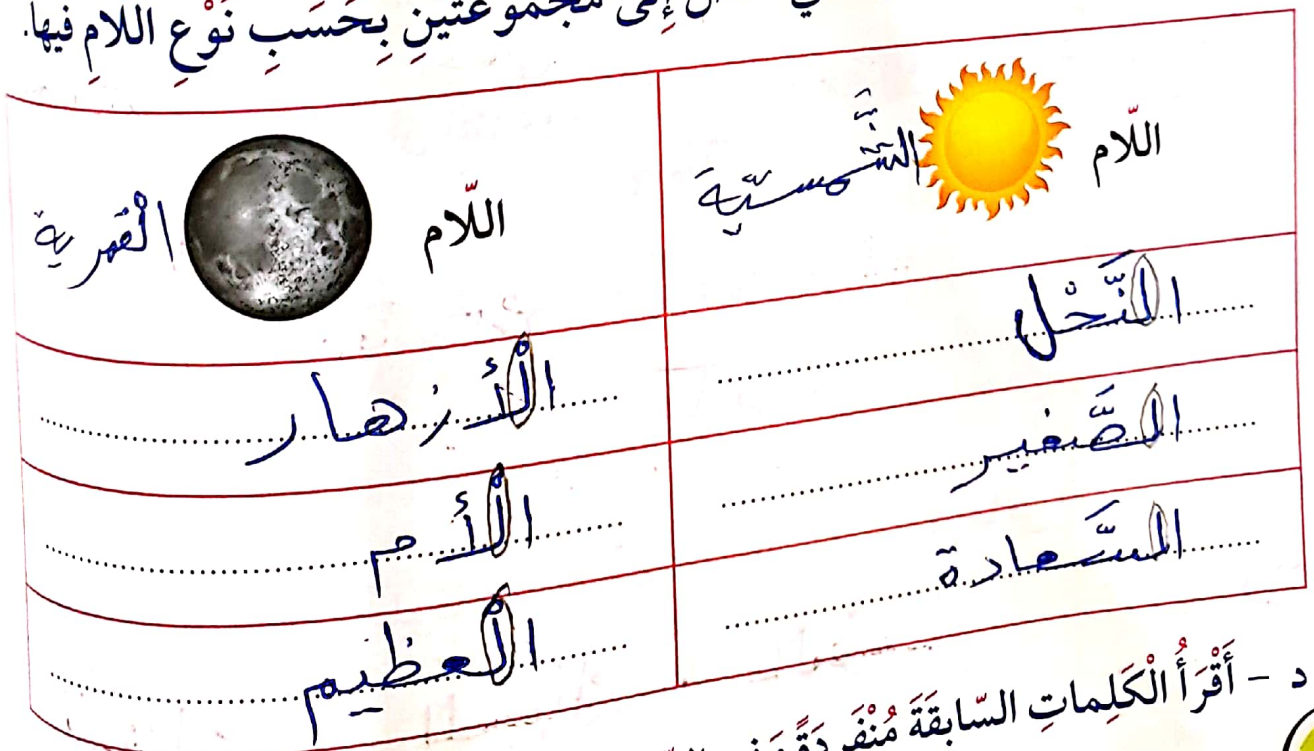 إِلَى مَجْموعَتَيْنِ بِحَسَبِ نَوْعِ اللّامِ فيها.
اللّام الشَّمسيّة
اللّام الْقمرية
النَّحْل
الْأَزهار
الصَّغير
الْأم
السَّعادة
الْعظيم
د - أَقْرَأُ الْكَلِماتِ السّابِقَةَ مُنْفَرِدَةً